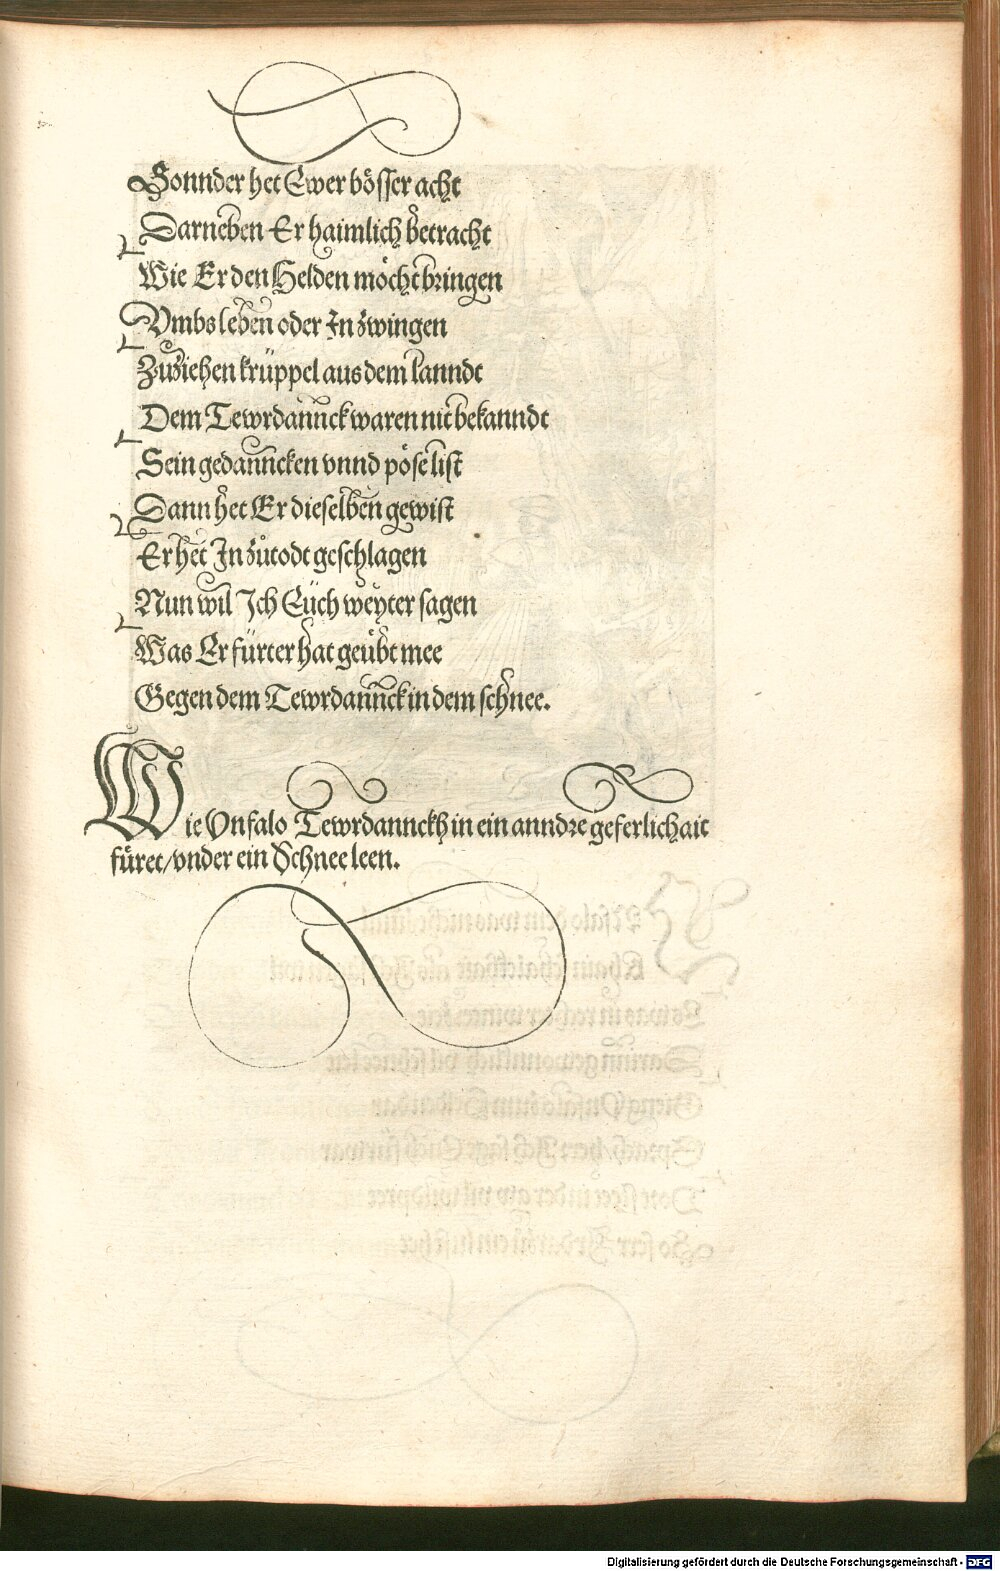 Sonnder het Ewer bösser acht
Darneben Er haimlich betracht
Wie Er den Helden möcht bringen
Vmbs leben oder In zwingen
Zuziehen krüppel aus dem lanndt
Dem Tewrdannck waren nit bekanndt
Sein gedanncken vnnd pöse list
Dann het Er dieselben gewist
Er het In zůtodt geschlagen
Nun wil Ich Eüch weyter sagen
Was Er fürter hat geübt mee
Gegen dem Tewrdannck in dem schnee.
Wie Vnfalo Tewrdannckh in ein anndre geferlichait
füret/vnder ein Schnee leen.
Digitalisierung gefördert durch die Deutsche Forschungsgemeinschaft - DFG